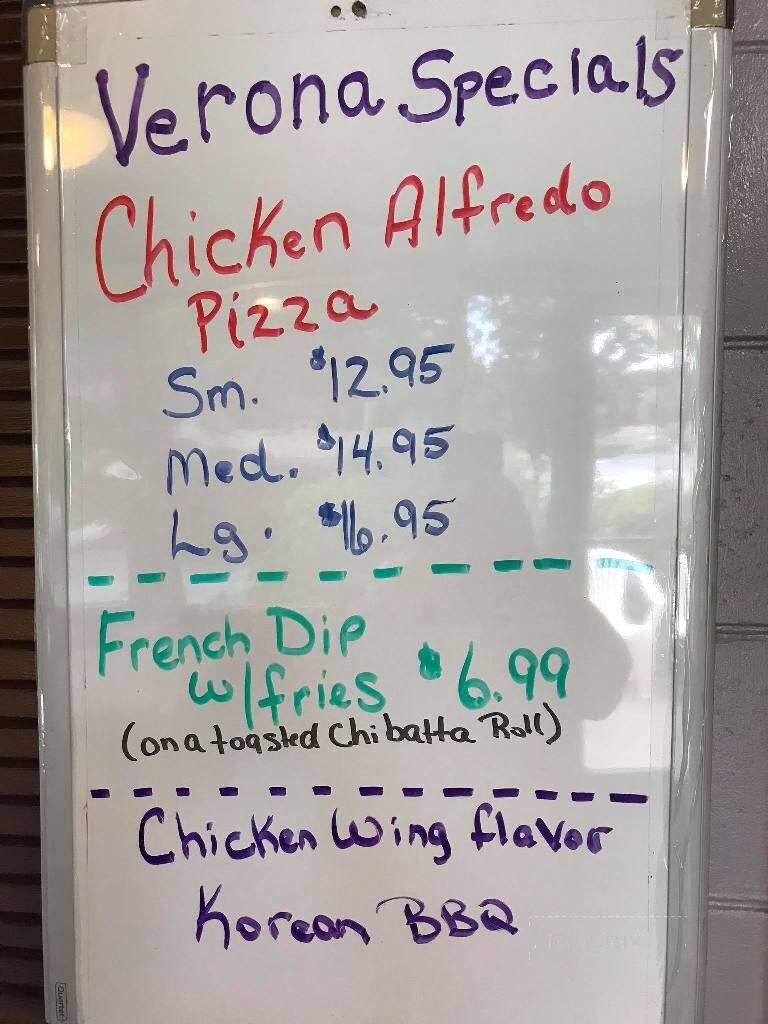 Verona Specials
Chicken Alfredo
Pizza
Sm. $12.95
Med. $14.95
Lg. $16.95
French Dip
w/fries $6.99
(on a toasted Chibatta Roll)
Chicken Wing flavor
Korean BBQ
Quartet